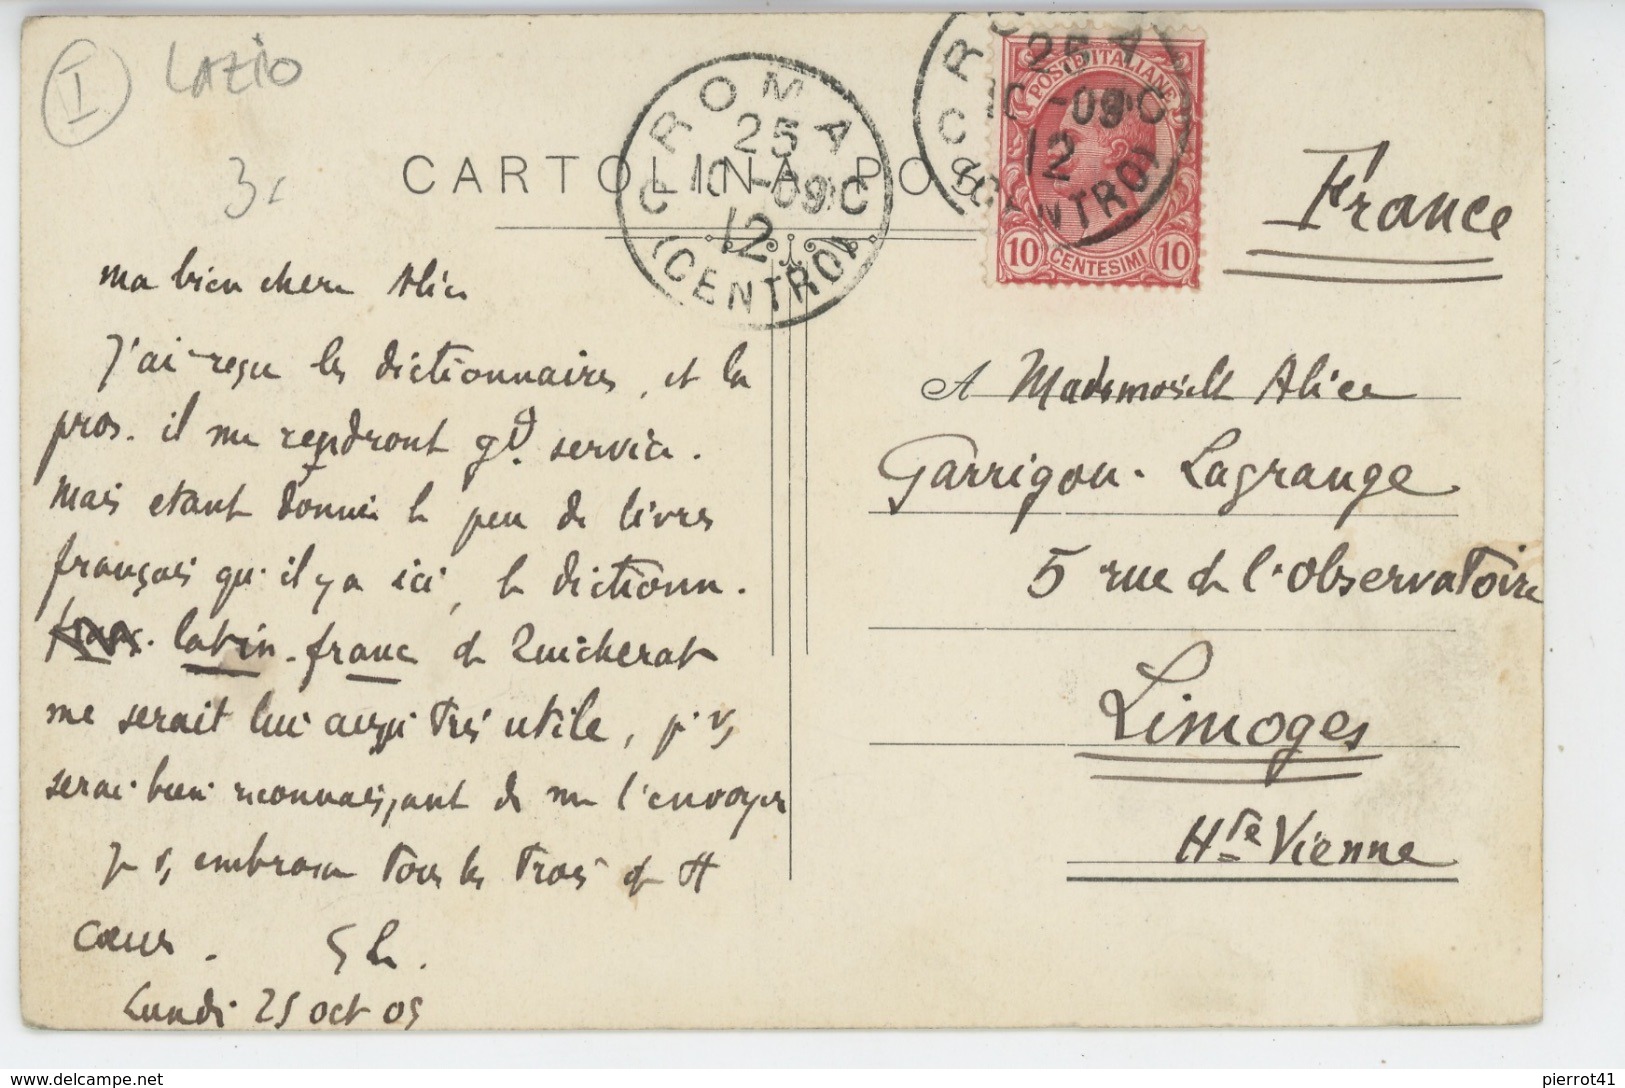 I
LAZIO
3€
CARTOLINA POS
ROMA
25
10-09
12
(CENTRO)
ROMA
25
10-09
12
(CENTRO)
POSTE ITALIANE
10 CENTESIMI 10
France
ma bien chere Alice
J'ai reçu les dictionnaires, et la
pros. il me rendront gd. service.
mais etant donné le peu de livres
français qu'il y a ici, le dictionn.
franc. latin-franc de Quicherat
me serait lui aussi très utile, je vs
serai bien reconnaissant de me l'envoyer
je vs embrasse tous les trois de tt
cœur. GL.
Lundi 25 oct 09
A Mademoiselle Alice
Garrigou-Lagrange
5 rue de l'Observatoire
Limoges
Hte Vienne
delcampe.net
pierrot41